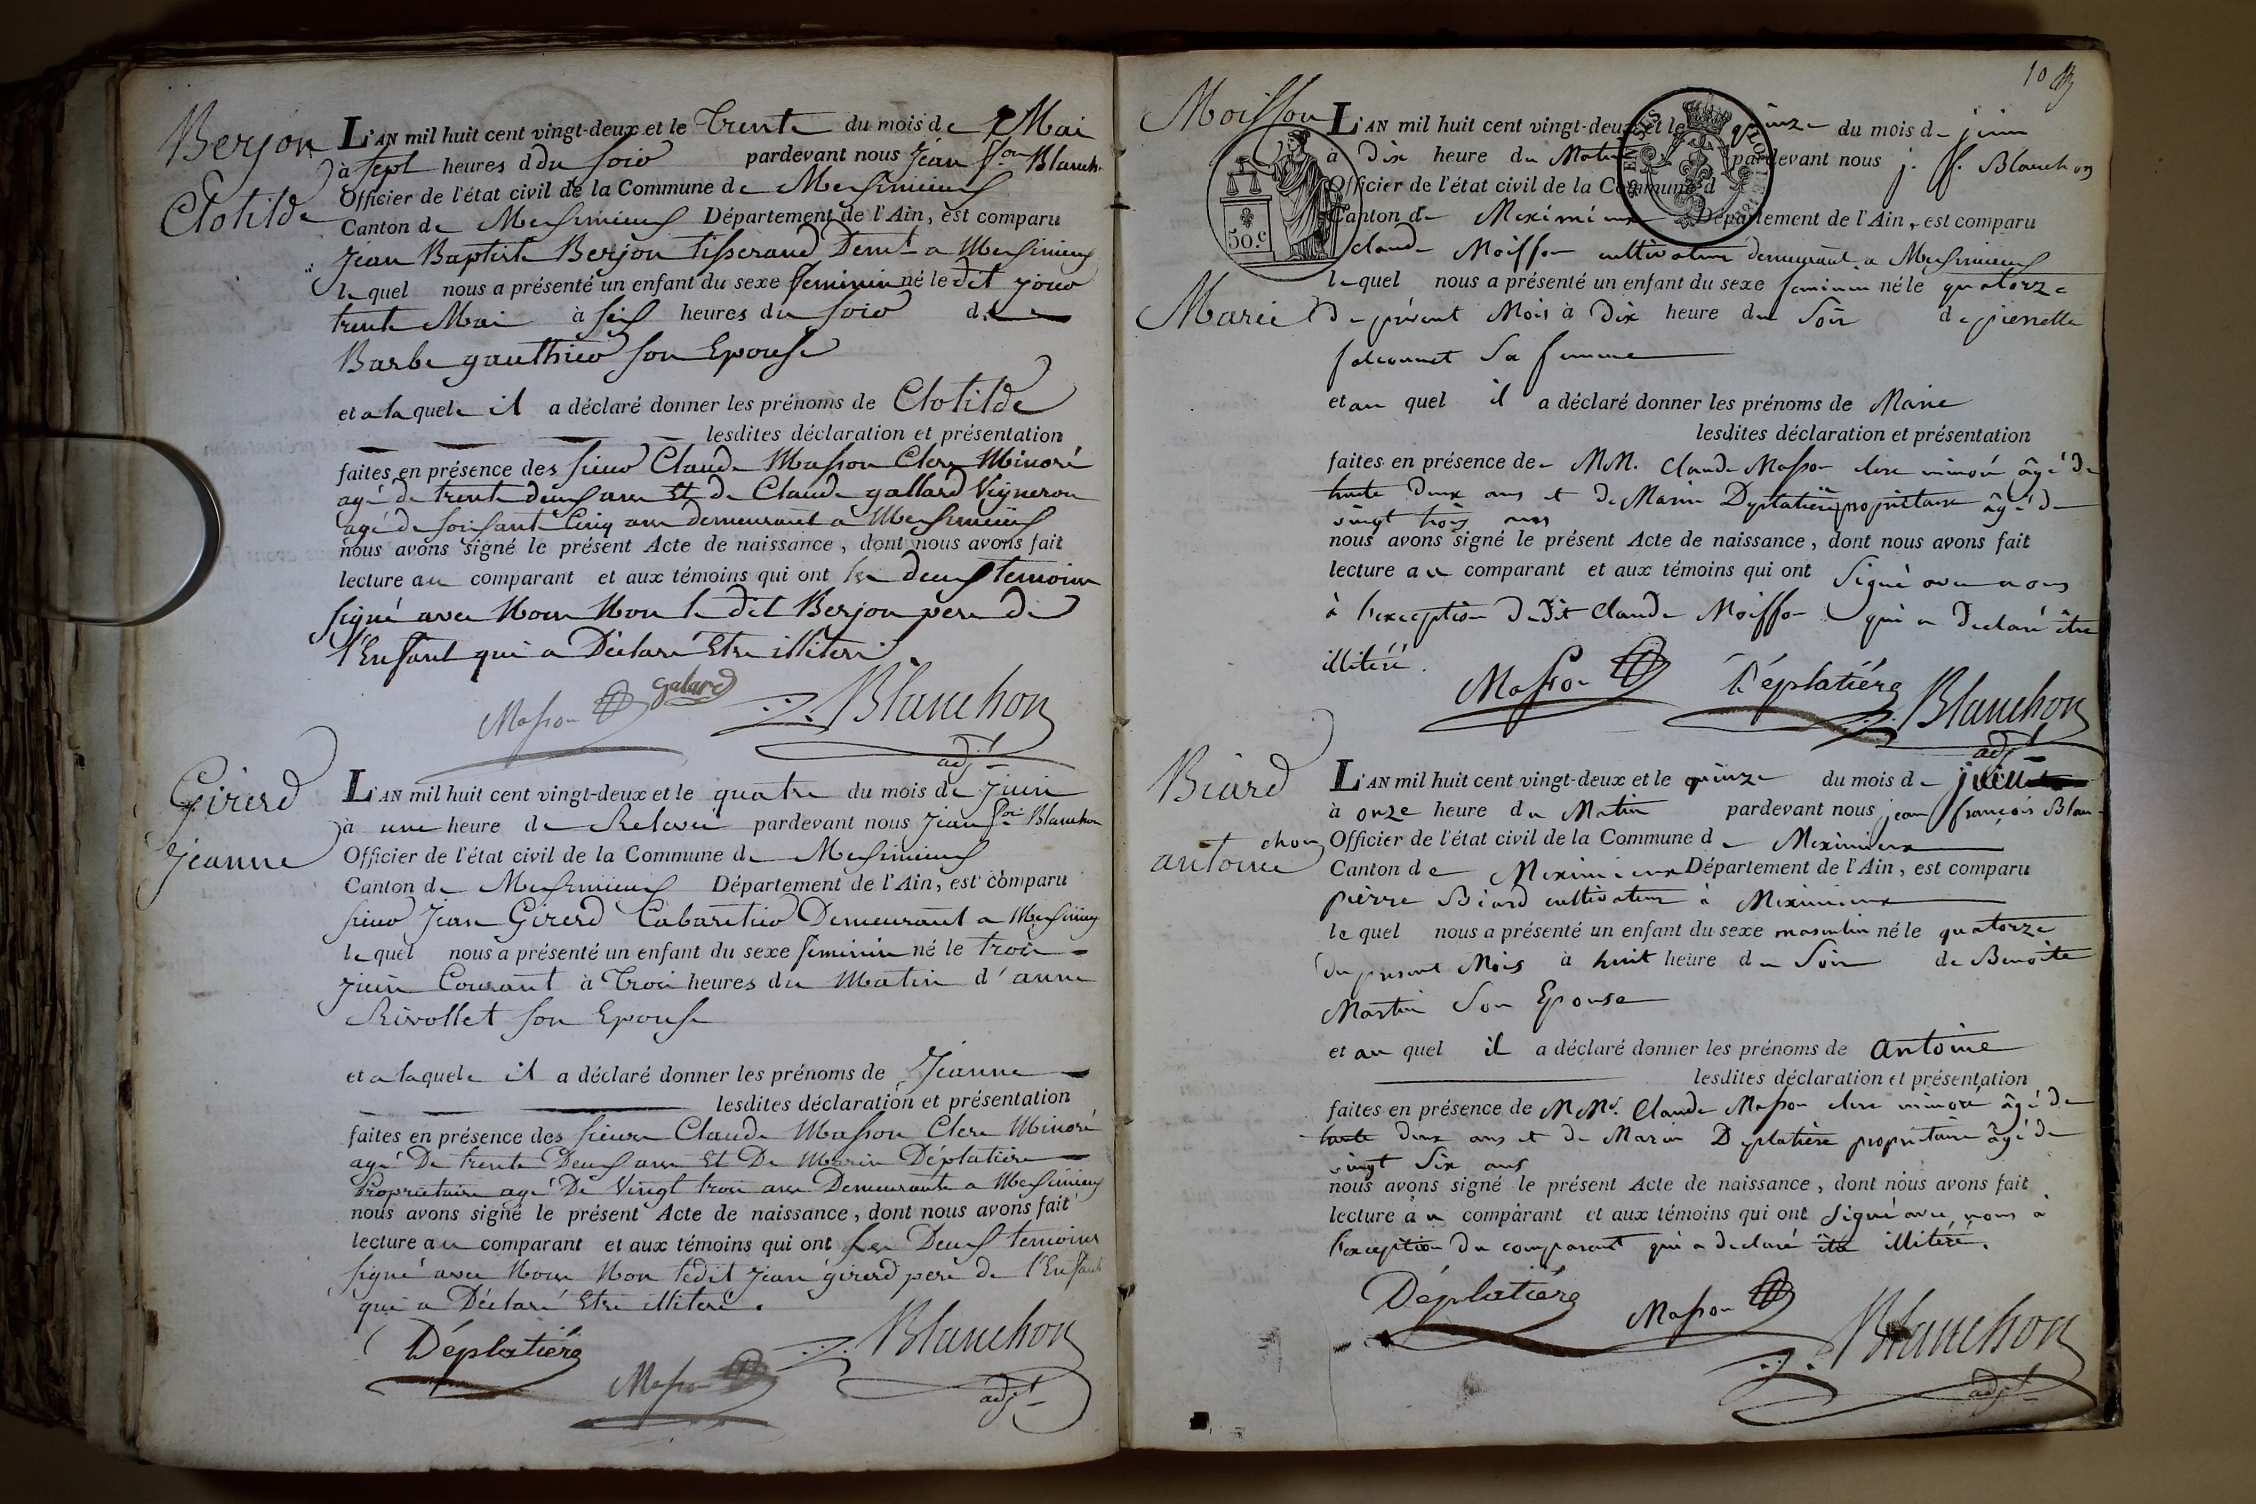 Berjon
Clotilde
L'AN mil huit cent vingt-deux et le Trente du mois de Mai
à sept heures d du soir pardevant nous Jean f.ois Blanch.
Officier de l'état civil de la Commune de Meximieux
Canton de Meximieux Département de l'Ain, est comparu
Jean Baptiste Berjon tisserand Demt a Meximieux
le quel nous a présenté un enfant du sexe feminin né le dit jour
trente Mai à six heures du soir de
Barbe gauthier son Epouse
et a laquele il a déclaré donner les prénoms de Clotilde
lesdites déclaration et présentation
faites en présence des sieur Claude Masson Clerc Minoré
agé de trente deux ans Et de Claude gallard Vigneron
agé de soixante Cinq ans demeurant a Meximieux
nous avons signé le présent Acte de naissance, dont nous avons fait
lecture au comparant et aux témoins qui ont les deux temoins
signé avec Nous Non le dit Berjon pere de
l'Enfant qui a Déclaré Etre illiteré.
Masson galard Blanchon
adjt
Girerd
Jeanne
L'AN mil huit cent vingt-deux et le quatre du mois de Juin
à une heure de Relevée pardevant nous Jean f.ois Blanchon
Officier de l'état civil de la Commune de Meximieux
Canton de Meximieux Département de l'Ain, est comparu
sieur Jean Girerd Cabaretier Demeurant a Meximieux
le quel nous a présenté un enfant du sexe feminin né le trois
juin Courant à Trois heures du Matin d'anne
Rivollet son Epouse
et a laquele il a déclaré donner les prénoms de Jeanne
lesdites déclaration et présentation
faites en présence des sieurs Claude Masson Clerc Minoré
agé De trente Deux ans Et De Marin Déplatière
Propriétaire agé De Vingt trois ans Demeurants a Meximieux
nous avons signé le présent Acte de naissance, dont nous avons fait
lecture au comparant et aux témoins qui ont les Deux temoins
signé avec Nous Non ledit Jean girerd pere de l'Enfant
qui a Déclaré Etre illiteré.
Déplatiére Masson Blanchon
adjt
10
Moiffon
Marie
L'AN mil huit cent vingt-deux et le quinze du mois de juin
à Dix heure du Matin pardevant nous j. f. Blanchon
Officier de l'état civil de la Commune d
Canton de Meximieux Département de l'Ain, est comparu
claude Moiffon cultivateur demeurant a Meximieux
le quel nous a présenté un enfant du sexe feminin né le quatorze
De présent Mois à Dix heure du Soir de pierrette
falconnet Sa femme
50.c
et au quel il a déclaré donner les prénoms de Marie
lesdites déclaration et présentation
faites en présence de MM. Claude Masson clerc minoré âgé de
trente deux ans et de Marin Deplatière propriétaire âgé de
vingt trois ans
nous avons signé le présent Acte de naissance, dont nous avons fait
lecture au comparant et aux témoins qui ont Signé avec nous
à l'exception dudit Claude Moiffon qui a déclaré être
illitéré.
Masson Déplatiére Blanchon
adjt
Biard
antoine
L'AN mil huit cent vingt-deux et le quinze du mois de juin
à onze heure du Matin pardevant nous jean françois Blan-
chon Officier de l'état civil de la Commune de Meximieux
Canton de Meximieux Département de l'Ain, est comparu
pierre Biard cultivateur à Meximieux
le quel nous a présenté un enfant du sexe masculin né le quatorze
du present Mois à huit heure du Soir de Benoite
Martin Son Epouse
et au quel il a déclaré donner les prénoms de Antoine
lesdites déclaration et présentation
faites en présence de MMrs. Claude Masson clerc minoré âgé de
trente deux ans et de Marin Deplatière propriétaire âgé de
vingt Six ans
nous avons signé le présent Acte de naissance, dont nous avons fait
lecture au comparant et aux témoins qui ont Signé avec nous à
l'exception du comparant qui a declaré être illitéré.
Déplatiére Masson Blanchon
adjt